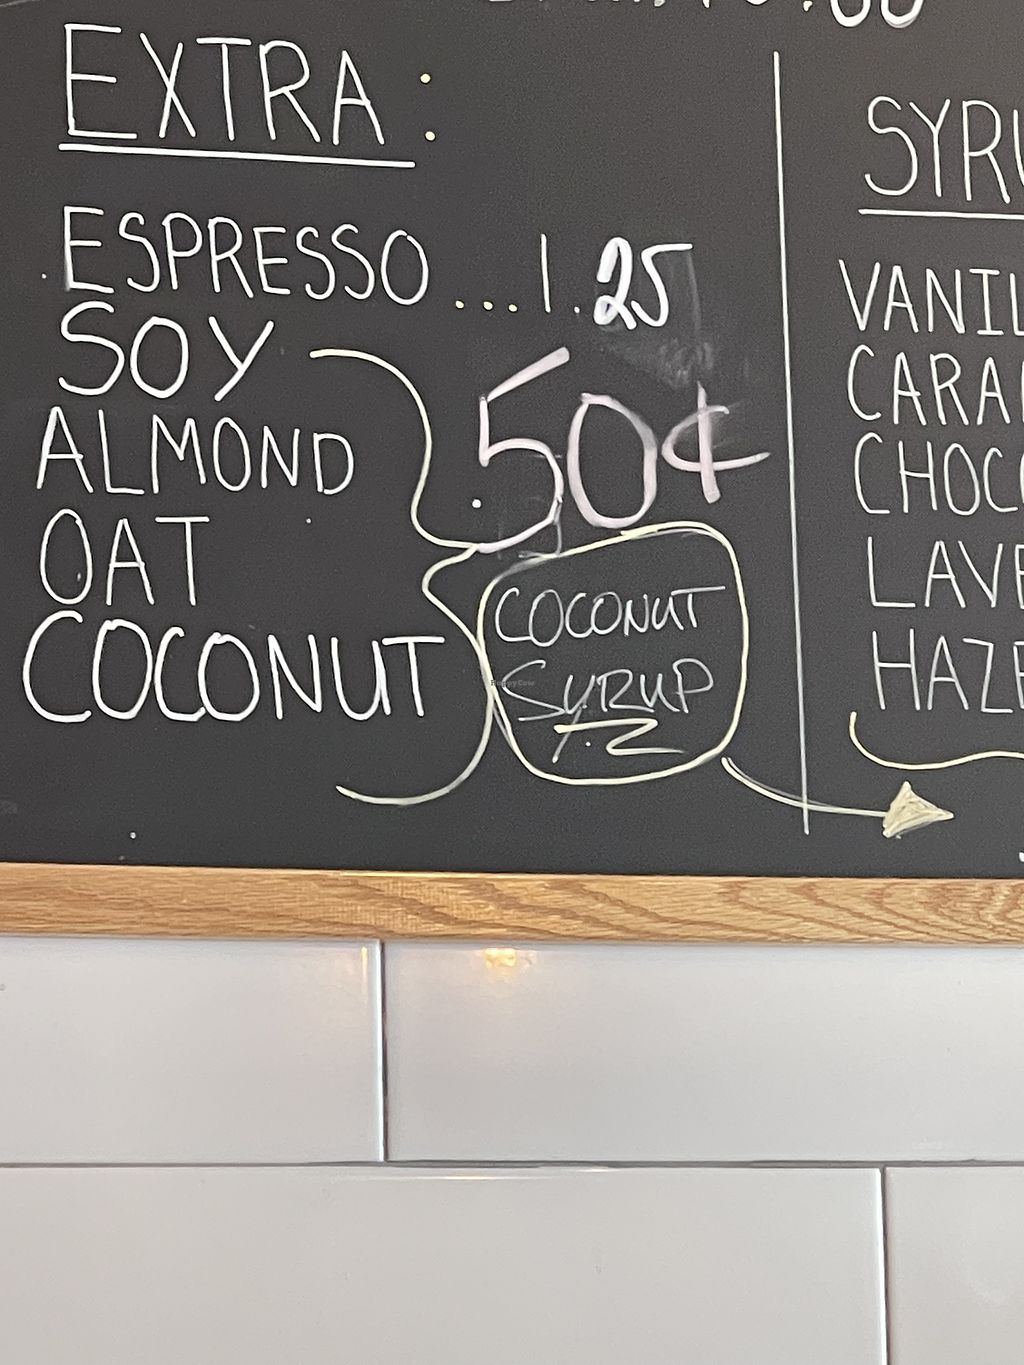 EXTRA:
ESPRESSO ... 1.25
SOY
ALMOND
OAT
COCONUT
50¢
COCONUT
SYRUP
SYRU
VANIL
CARA
CHOC
LAVE
HAZE
HappyCow